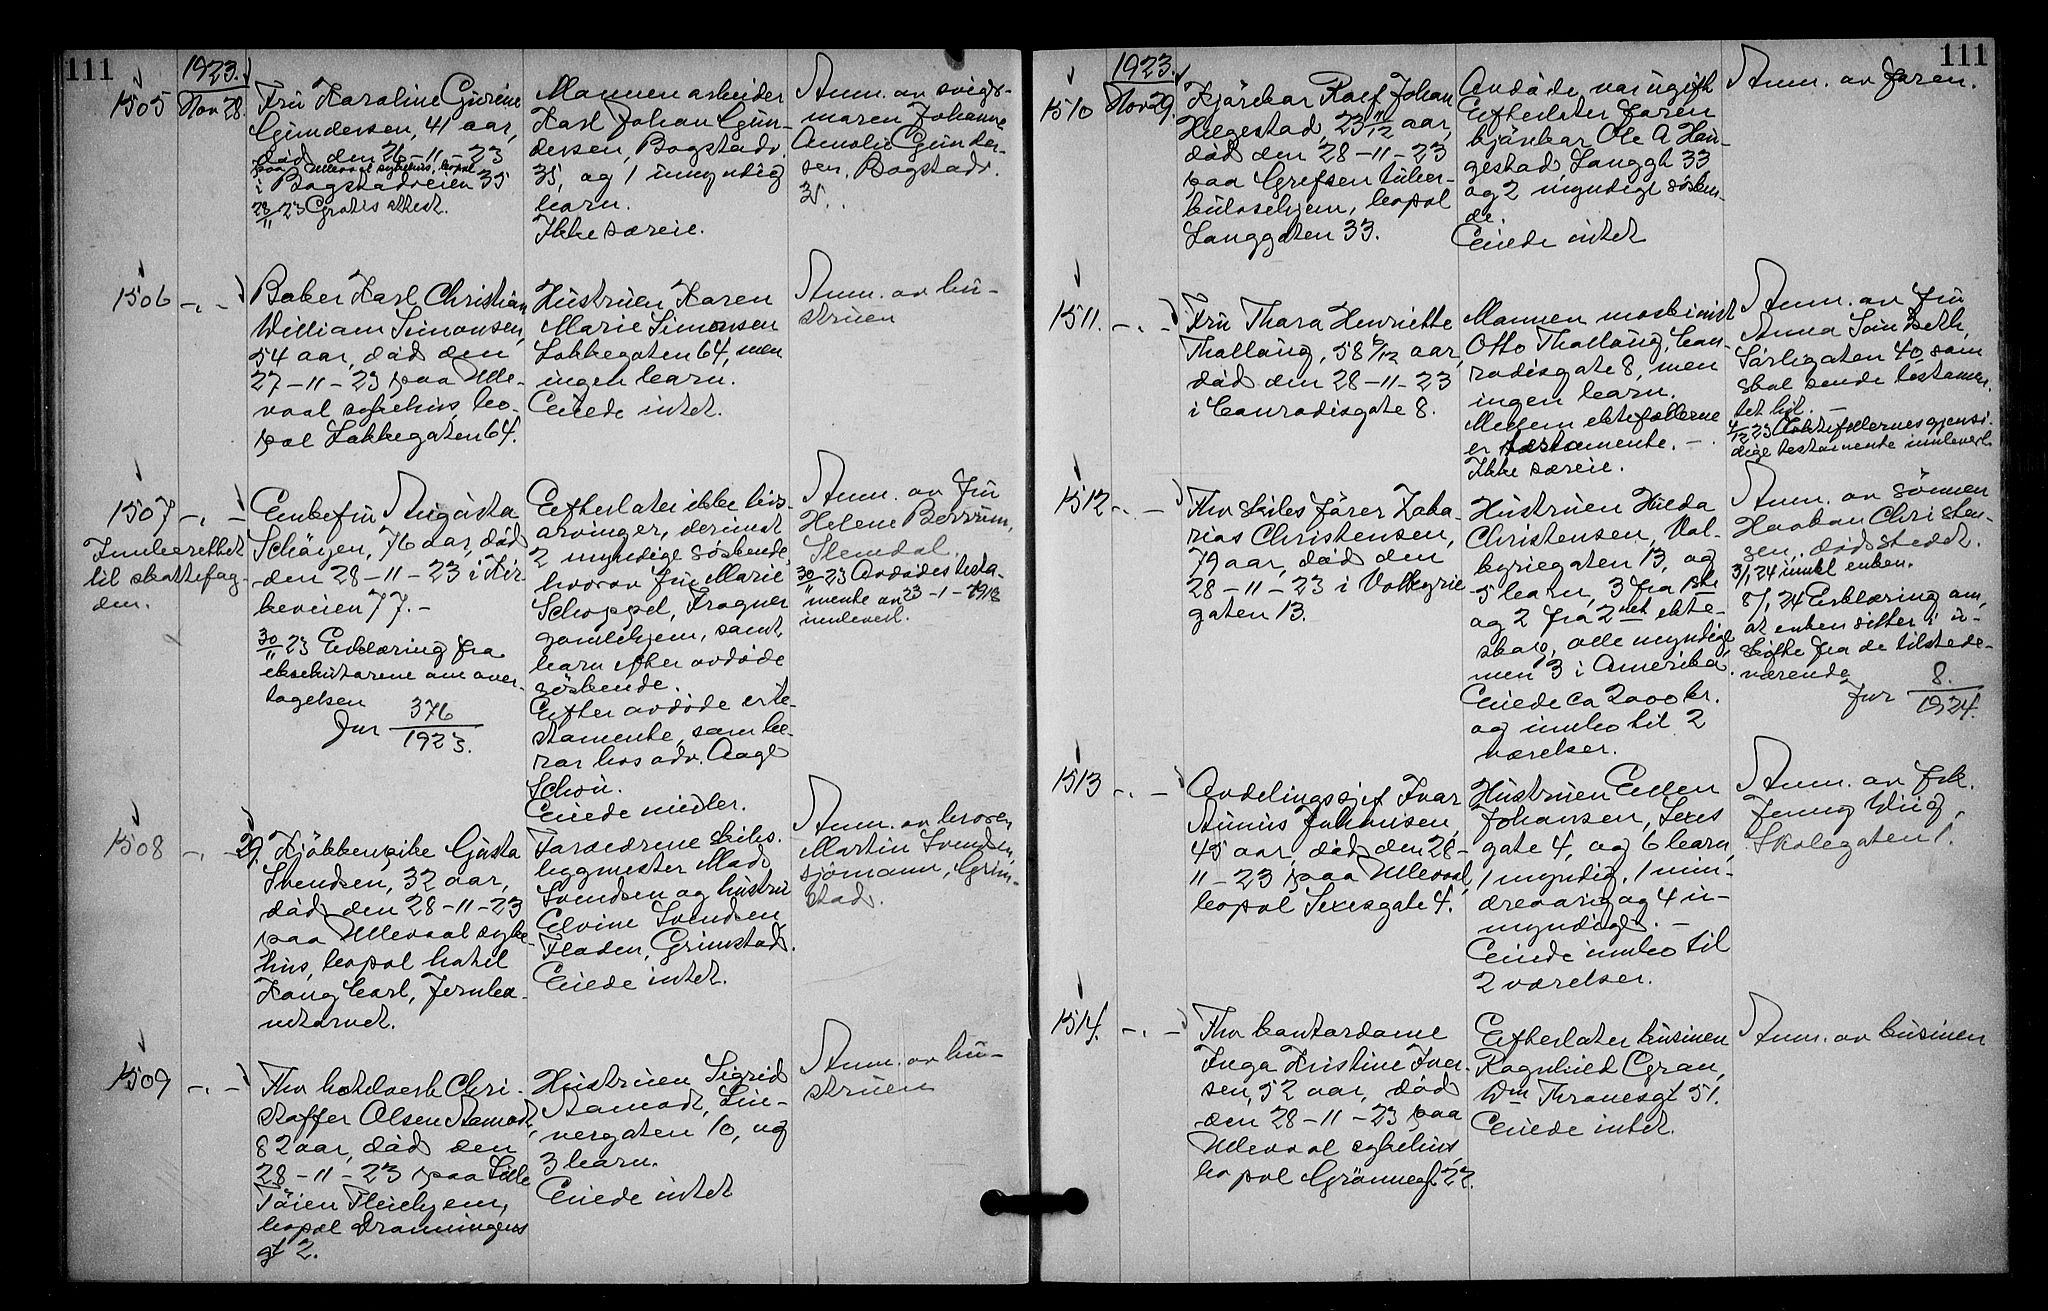 111
1923.
1505
Nov 28.
Fru Karoline Gurine
Gundersen, 41 aar,
død den 26-11-23
paa Ullevaal sykehus, bopæl
i Bogstadveien 35
28/11 23 Gratis attest.
Mannen arbeider
Karl Johan Gun-
dersen, Bogstadv.
35, og 1 umyndig
barn.
Ikke særeie.
Anm. av sviger-
moren Johanne
Amalie Gunder-
sen, Bogstadv.
35.
1506
-,, -
Baker Karl Christian
William Simonsen,
54 aar, død den
27-11-23 paa Ulle-
vaal sykehus, bo-
pæl Løkkegaten 64.
Hustruen Karen
Marie Simonsen
Løkkegaten 64, men
ingen barn.
Eiede intet.
Anm. av hu-
struen
1507
-,, -
Innberettet
til skattefog-
den.
Enkefru Augusta
Schøyen, 76 aar, død
den 28-11-23 i Kir-
keveien 77.-
30/11 23 Erklæring fra
eksekutorene om over-
tagelsen
Jnr 376/1923.
Efterlater ikke livs-
arvinger, derimot
2 myndige søskende
hvorav fru Marie
Schoppel, Frogner
gamlehjem, samt
barn efter avdøde
søskende.
Efter avdøde er te-
stamente, som be-
ror hos adv. Aage
Schou.
Eiede midler.
Anm. av fru
Helene Borrum,
Slemdal.
30/11 23 Avdødes testa-
mente av 23-1-1918
innlevert.
1508
-,, -
29.
Kjøkkenpike Gusta
Svendsen, 32 aar,
død den 28-11-23
paa Ullevaal syke-
hus, bopæl hotel
Kong Carl, Jernba-
netorvet.
Foreldrene skibs-
byggmester Mads
Svendsen og hustru
Elvine Svendsen
Fladen, Grimstad.
Eiede intet.
Anm. av broren
Martin Svendsen,
sjømann, Grim-
stad.
1509
-,, -
Fhv hotelvert Chri-
stoffer Olsen Aamodt,
82 aar, død den
28-11-23 paa Lille
Tøien Pleiehjem,
bopæl Dronningens
gt 2.
Hustruen Sigrid
Aamodt,
vergaten 10, og
3 barn.
Eiede intet
Anm. av hu-
struen
111
1923.
1510
Nov 29.
Kjørekar Rolf Johan
Haugestad, 23 11/12 aar,
død den 28-11-23
paa Grefsen tuber-
kulosehjem, bopæl
Langgaten 33.
Avdøde var ugift
Efterlater faren
kjørekar Ole A Hau-
gestad, Langgt 33
og 2 myndige søsken-
de.
Eiede intet
Anm. av faren.
1511.
-,, -
Fru Thora Henriette
Thallaug, 58 6/12 aar,
død den 28-11-23
i Conradisgate 8.
Mannen maskinist
Otto Thallaug, Con-
radisgate 8, men
ingen barn.
Mellem ektefællerne
er testamente. -
Ikke særeie.
Anm. av fru
Anna
Sørligaten 40, som
skal sende testamen-
tet hit. -
4/12 23 Ektefellernes gjensi-
dige testamente innlevert.
1512
-,, -
Fhv skibsfører Zaka-
rias Christensen,
79 aar, død den
28-11-23 i Valkyrie
gaten 13.
Hustruen Hulda
Christensen, Val-
kyriegaten 13, og
5 barn, 3 fra 1ste
og 2 fra 2net ekte-
skap, alle myndige
men 3 i Amerika.
Eiede ca 2000 kr.
og innbo til 2
værelser.
Anm. av sønnen
Haakon Christen-
sen, dødsstedet.
3/1 24 innk enken.
8/1 24 Erklæring om,
at enken sitter i u-
skifte fra de tilstede-
værende
Jnr 8./1924.
1513
-,, -
Avdelingssjef Ivar
Johansen,
45 aar, død den 28-
11-23 paa Ullevaal,
bopæl Sexesgate 4.
Hustruen Ellen
Johansen, Sexes
gate 4, og 6 barn,
1 myndig, 1 min-
dreaarig og 4 u-
myndige. -
Eiede innbo til
2 værelser.
Anm. av frk.
Jenny Wiig,
Skolegaten 1.
1514.
-,, -
Fhv kontordame
Inga Kristine Iver-
sen, 52 aar, død
den 28-11-23 paa
Ullevaal sykehus,
bopæl Grønnegt 22.
Efterlater kusinen
Ragnhild Gran,
Wm Thranesgt 51.
Eiede intet.
Anm. av kusinen